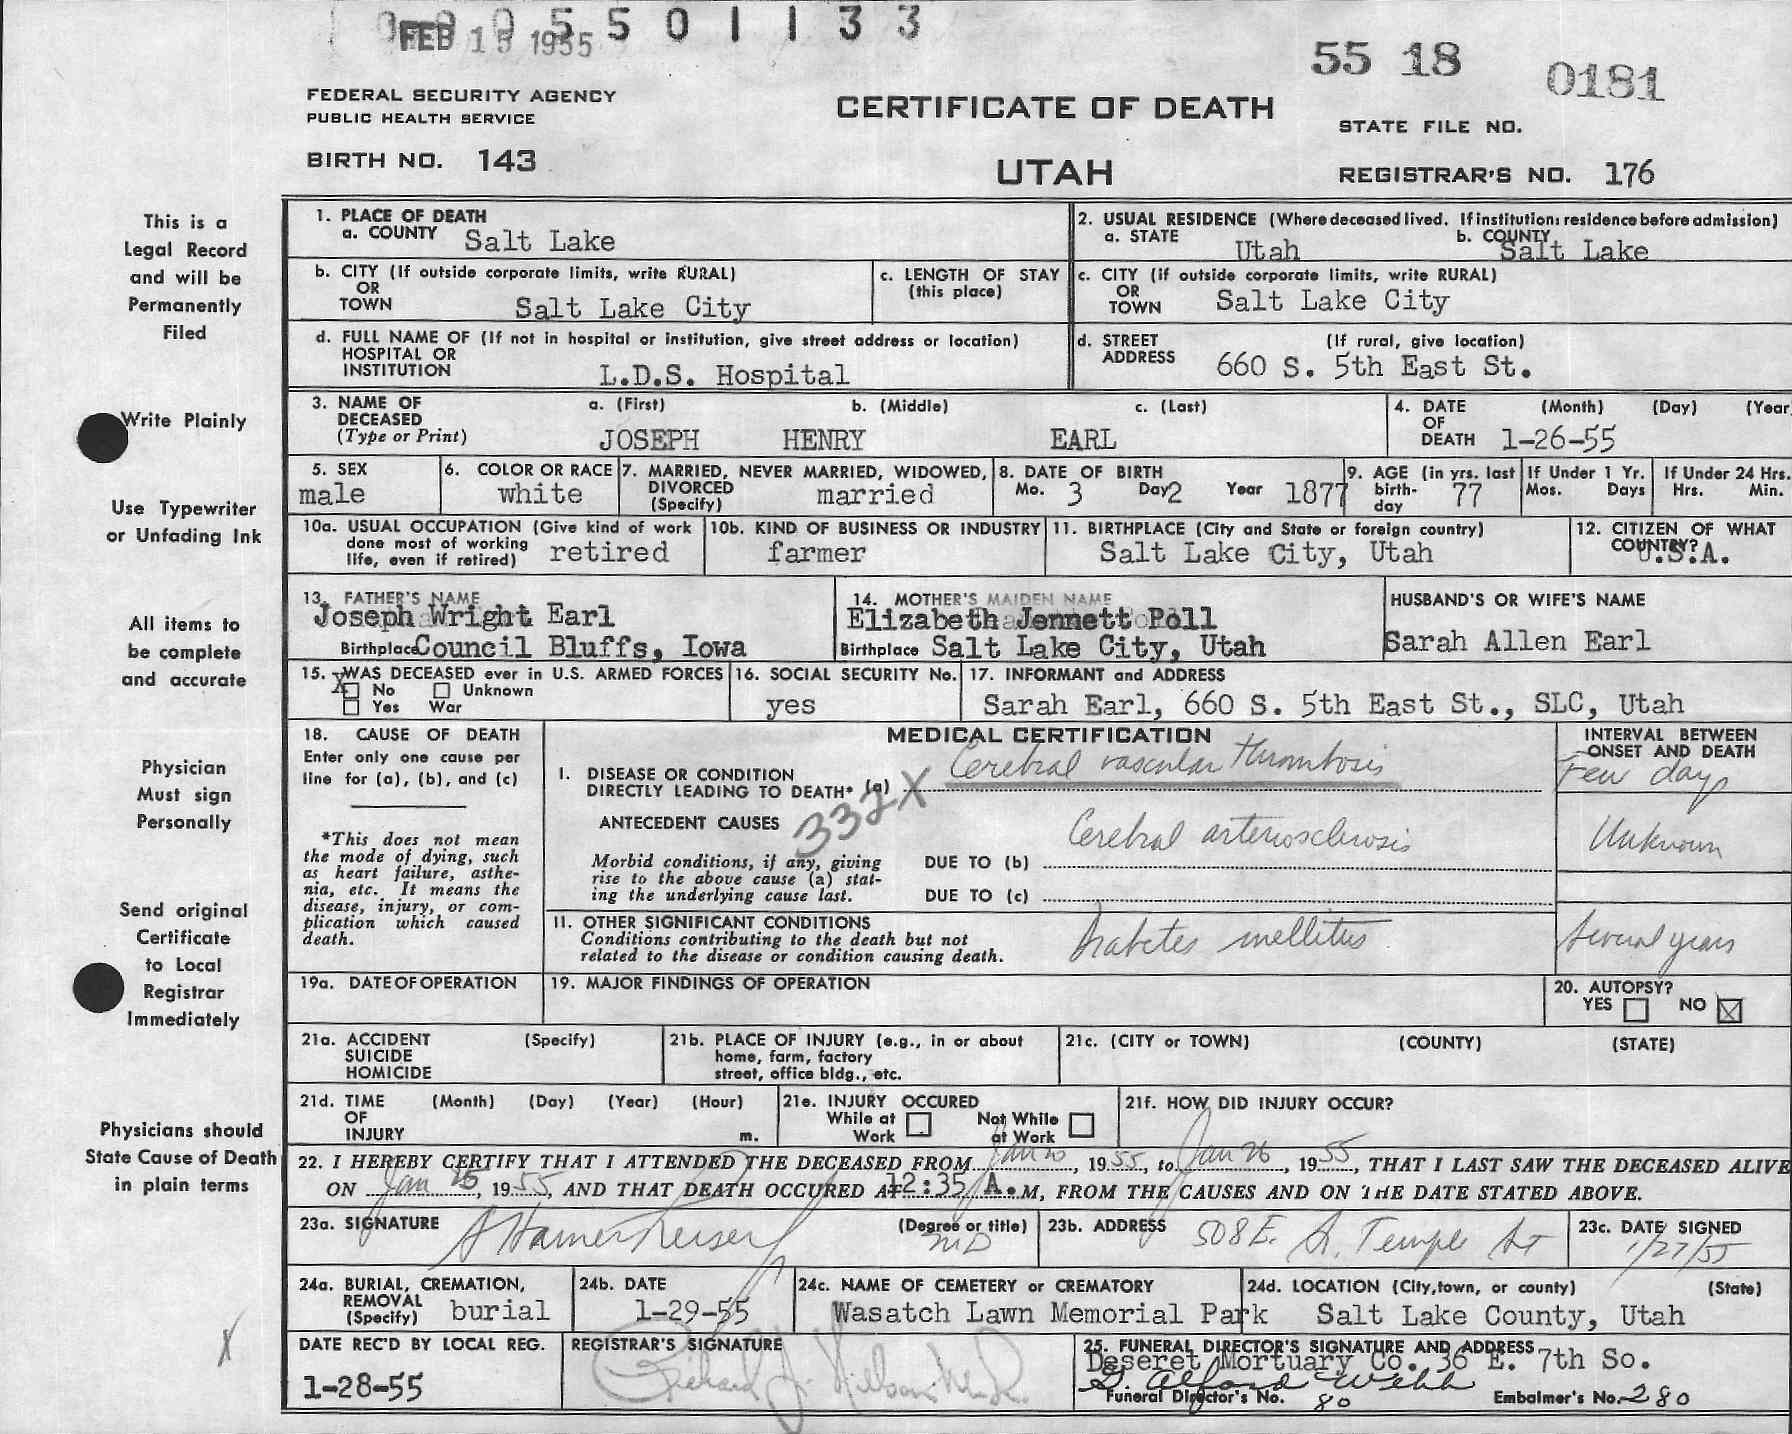 0 0 0 5 5 0 1 1 3 3
FEB 15 1955
55 18 0181
FEDERAL SECURITY AGENCY
PUBLIC HEALTH SERVICE
CERTIFICATE OF DEATH
STATE FILE NO.
BIRTH NO. 143
UTAH
REGISTRAR'S NO. 176
This is a
Legal Record
and will be
Permanently
Filed
Write Plainly
Use Typewriter
or Unfading Ink
All items to
be complete
and accurate
Physician
Must sign
Personally
Send original
Certificate
to Local
Registrar
Immediately
Physicians should
State Cause of Death
in plain terms
X
1. PLACE OF DEATH
a. COUNTY Salt Lake
2. USUAL RESIDENCE (Where deceased lived. If institution: residence before admission)
a. STATE Utah b. COUNTY Salt Lake
b. CITY (If outside corporate limits, write RURAL)
OR
TOWN Salt Lake City
c. LENGTH OF STAY
(this place)
c. CITY (if outside corporate limits, write RURAL)
OR
TOWN Salt Lake City
d. FULL NAME OF (If not in hospital or institution, give street address or location)
HOSPITAL OR
INSTITUTION L.D.S. Hospital
d. STREET (If rural, give location)
ADDRESS 660 S. 5th East St.
3. NAME OF a. (First) b. (Middle) c. (Last)
DECEASED
(Type or Print) JOSEPH HENRY EARL
4. DATE (Month) (Day) (Year
OF
DEATH 1-26-55
5. SEX
male
6. COLOR OR RACE
white
7. MARRIED, NEVER MARRIED, WIDOWED,
DIVORCED married
(Specify)
8. DATE OF BIRTH
Mo. 3 Day 2 Year 1877
9. AGE (in yrs. last
birth- 77
day
If Under 1 Yr.
Mos. Days
If Under 24 Hrs.
Hrs. Min.
10a. USUAL OCCUPATION (Give kind of work
done most of working
life, even if retired) retired
10b. KIND OF BUSINESS OR INDUSTRY
farmer
11. BIRTHPLACE (City and State or foreign country)
Salt Lake City, Utah
12. CITIZEN OF WHAT
COUNTRY? U.S.A.
13. FATHER'S NAME
Joseph Wright Earl
Birthplace Council Bluffs, Iowa
14. MOTHER'S MAIDEN NAME
Elizabeth Jennett Poll
Birthplace Salt Lake City, Utah
HUSBAND'S OR WIFE'S NAME
Sarah Allen Earl
15. WAS DECEASED ever in U.S. ARMED FORCES
X No Unknown
Yes War
16. SOCIAL SECURITY No.
yes
17. INFORMANT and ADDRESS
Sarah Earl, 660 S. 5th East St., SLC, Utah
18. CAUSE OF DEATH
Enter only one cause per
line for (a), (b), and (c)
*This does not mean
the mode of dying, such
as heart failure, asthe-
nia, etc. It means the
disease, injury, or com-
plication which caused
death.
MEDICAL CERTIFICATION
INTERVAL BETWEEN
ONSET AND DEATH
I. DISEASE OR CONDITION
DIRECTLY LEADING TO DEATH* (a) Cerebral vascular thrombosis Few days
332X
ANTECEDENT CAUSES
Morbid conditions, if any, giving
rise to the above cause (a) stat-
ing the underlying cause last.
DUE TO (b) Cerebral arteriosclerosis Unknown
DUE TO (c)
11. OTHER SIGNIFICANT CONDITIONS
Conditions contributing to the death but not
related to the disease or condition causing death.
Diabetes mellitus Several years
19a. DATE OF OPERATION
19. MAJOR FINDINGS OF OPERATION
20. AUTOPSY?
YES NO X
21a. ACCIDENT (Specify)
SUICIDE
HOMICIDE
21b. PLACE OF INJURY (e.g., in or about
home, farm, factory
street, office bldg., etc.
21c. (CITY or TOWN) (COUNTY) (STATE)
21d. TIME (Month) (Day) (Year) (Hour)
OF
INJURY m.
21e. INJURY OCCURED
While at Not While
Work at Work
21f. HOW DID INJURY OCCUR?
22. I HEREBY CERTIFY THAT I ATTENDED THE DECEASED FROM Jan 20, 1955, to Jan 26, 1955, THAT I LAST SAW THE DECEASED ALIVE
ON Jan 25, 1955, AND THAT DEATH OCCURED AT 12:35 A.M, FROM THE CAUSES AND ON THE DATE STATED ABOVE.
23a. SIGNATURE (Degree or title)
MD
23b. ADDRESS 508 E. So. Temple St
23c. DATE SIGNED
1/27/55
24a. BURIAL, CREMATION,
REMOVAL
(Specify) burial
24b. DATE
1-29-55
24c. NAME OF CEMETERY or CREMATORY
Wasatch Lawn Memorial Park
24d. LOCATION (City, town, or county) (State)
Salt Lake County, Utah
DATE REC'D BY LOCAL REG.
1-28-55
REGISTRAR'S SIGNATURE
25. FUNERAL DIRECTOR'S SIGNATURE AND ADDRESS
Deseret Mortuary Co. 36 E. 7th So.
Webb
Funeral Director's No. 80 Embalmer's No. 280